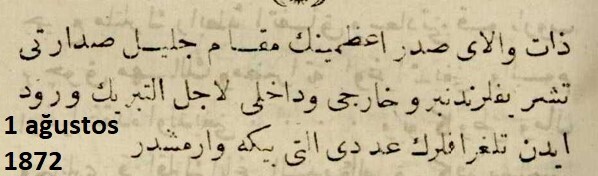 ذات والای صدر اعظمینك مقام جلیل صدارتی
تشریفلرندنبرو خارجی وداخلی لاجل التبریك ورود
ایدن تلغرافلرك عددی التی بیكه وارمشدر
1 ağustos
1872